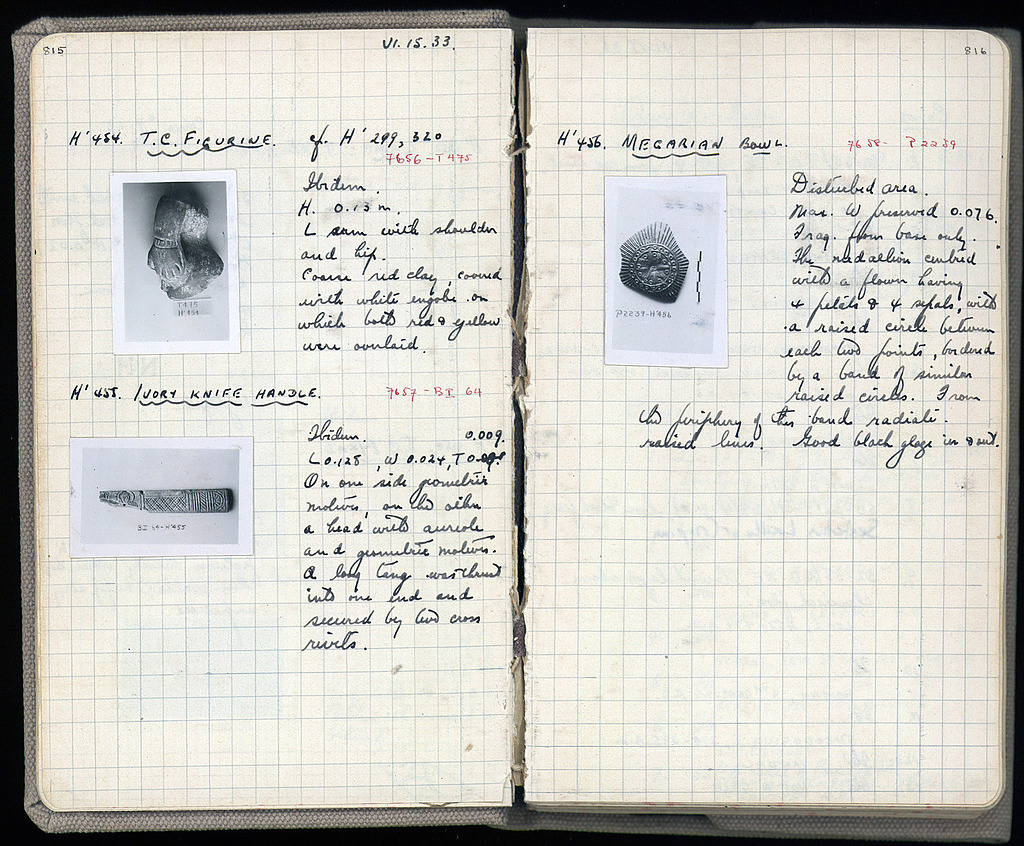 815
VI.15.33.
H'454. T.C. FIGURINE. cf. H'299, 320
7656-T475
Ibidem.
H. 0.13 m.
L arm with shoulder
and hip.
Coarse red clay, covered
with white engobe on
which both red & yellow
were overlaid.
T475
H'454
H'455. IVORY KNIFE HANDLE. 7657-BI 64
Ibidem. 0.009.
L 0.128, W 0.024, T
On one side geometric
motives, on the other
a head with aureole
and geometric motives.
A long tang was thrust
into one end and
secured by two cross
rivets.
BI 64-H'455
816
H'456. MEGARIAN BOWL. 7658- P2239
Disturbed area.
Max. W preserved 0.076.
Frag. from base only.
The medallion centred
with a flower having
4 petals & 4 sepals, with
a raised circle between
each two points, bordered
by a band of similar
raised circles. From
the periphery of this band radiate
raised lines. Good black glaze in & out.
P2239-H'456